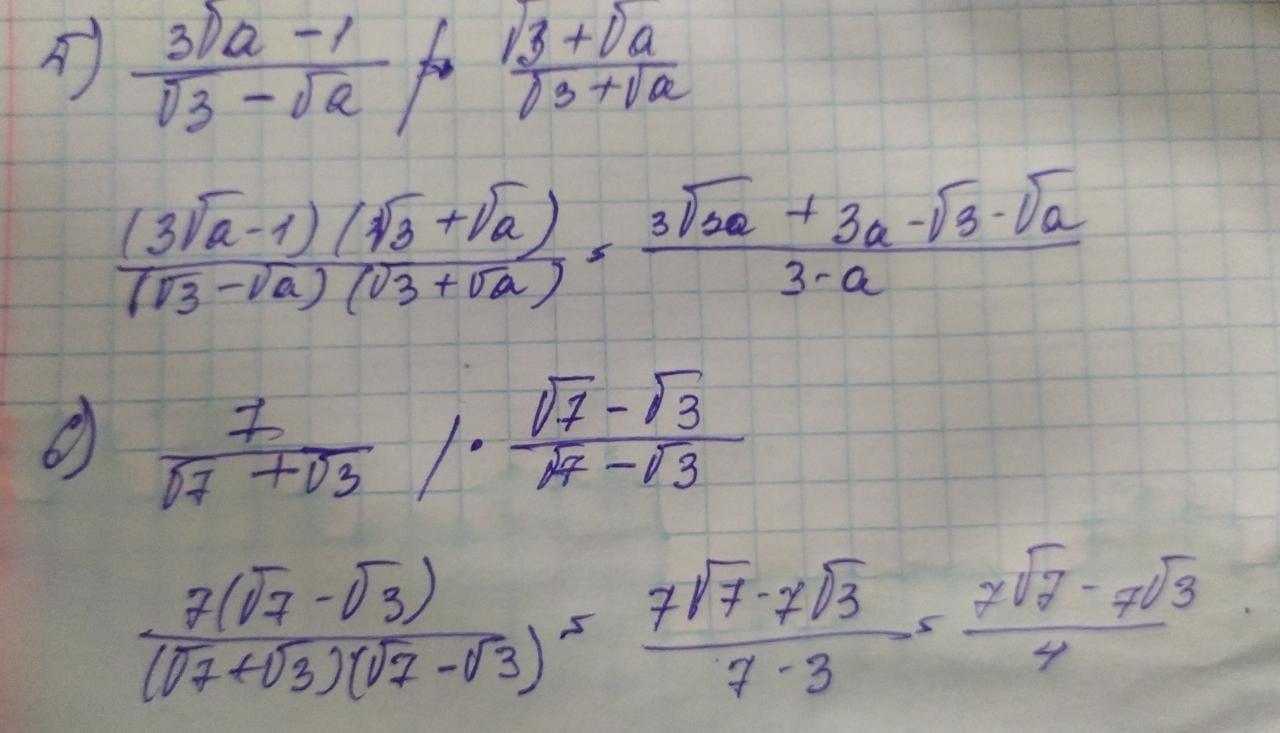 5) (3√a - 1)/(√3 - √a) /· (√3 + √a)/(√3 + √a)
((3√a - 1)(√3 + √a))/((√3 - √a)(√3 + √a)) = (3√3a + 3a - √3 - √a)/(3 - a)
6) 7/(√7 + √3) /· (√7 - √3)/(√7 - √3)
(7(√7 - √3))/((√7 + √3)(√7 - √3)) = (7√7 - 7√3)/(7 - 3) = (7√7 - 7√3)/4